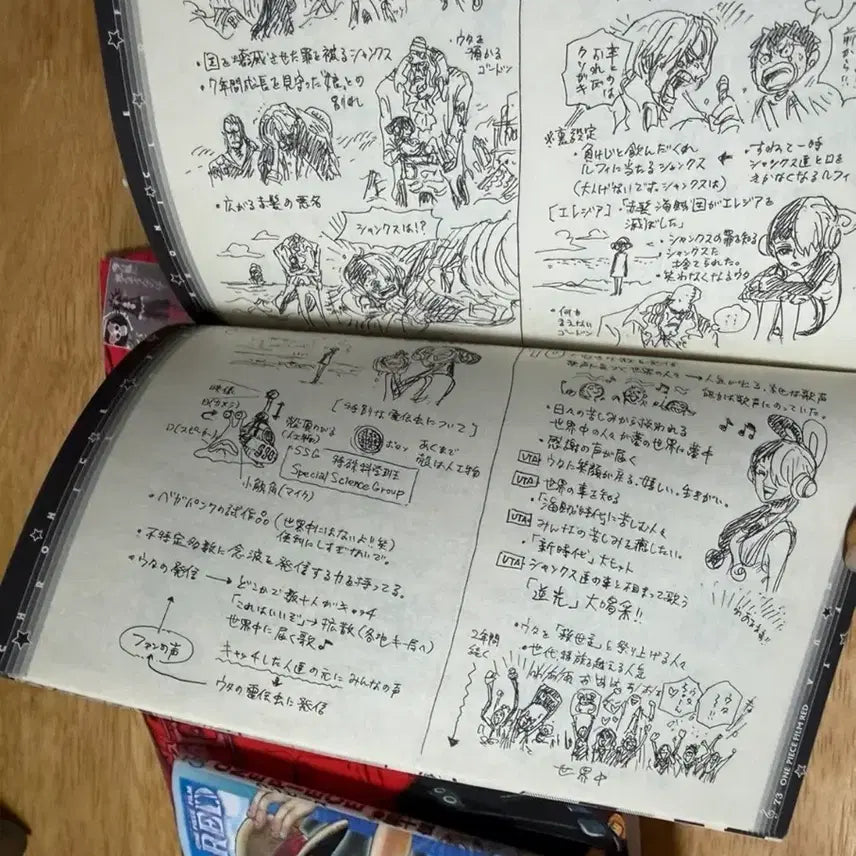 ・国を壊滅させた罪を被るシャンクス
・7年間成長を見守った"娘"との
別れ
・ウタを
預かる
ゴードン
・広がる赤髪の悪名
シャンクスは!?
※裏設定
・負けじと飲んだくれ
ルフィに当たるシャンクス
(大人げないです、シャンクスは)
・すねて一時
シャンクス達と口を
きかなくなるルフィ
[エレジア]・「赤髪海賊団がエレジアを
滅ぼした」
・シャンクスの罪を知る
・シャンクスに
捨てられた。
・笑わなくなるウタ
・何も
言えない
ゴードン
[特別な電伝虫について]
映像
殻貝がある
(人工物)
ボタン
あくまで
殻は人工物
SSG 特殊科学班
Special Science Group
小触角(マイク)
・ベガパンクの試作品(世界中にはないよ!!笑)
便利にしすぎないで。
・不特定多数に念波を発信する力を持ってる。
・ウタの発信 → どこかで数十人がキャッチ
「これはいいぞ」→ 拡散(各地キー局へ)
世界中に届く歌♪
ファンの声
キャッチした人達の元にみんなの声
ウタの電伝虫に発信
・日々の苦しみから救われる
世界中の人々が夢の世界に夢中
・感謝の声が届く
UTA ウタに笑顔が戻る、嬉しい。生きがい。
UTA 世界の事を知る
・「海賊時代に苦しむ人々」
UTA みんなの苦しみを癒したい。
・「新時代」大ヒット
UTA シャンクス達の事と相まって歌う
「逆光」大喝采!!
・ウタを「救世主」と祭り上げる人々
・世代種族を越える人気
2年間
続く
世界中
73 ONE PIECE FILM RED
ONE PIECE FILM
RED